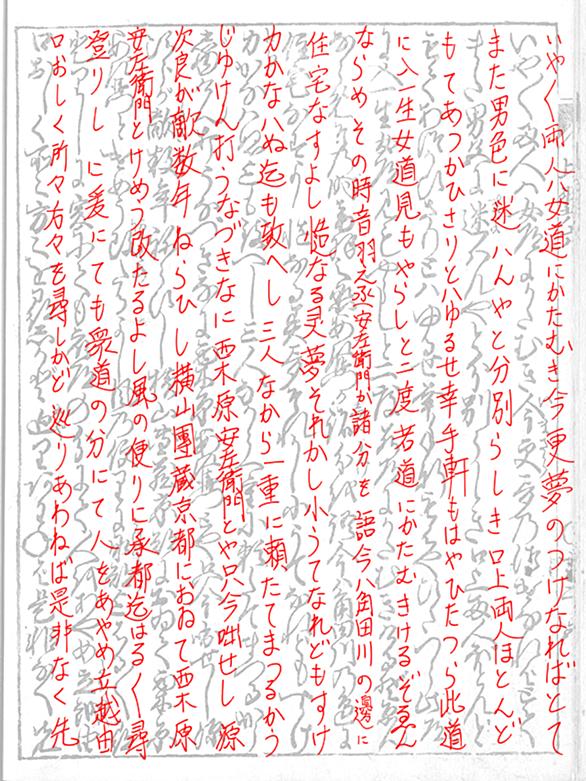 いやく両人ハ女道にかたむき今更夢のつげなればとて
また男色に迷ハんやと分別らしき口上両人ほとんど
もてあつかひさりとハゆるせ幸手軒もはやひたつら此道
に入一生女道見もやらしと二度若道にかたむきけるぞるん
ならめその時音羽之丞安左衛門か諸分を語今ハ角田川の邊に
住宅なすよし慥なる灵夢それかし小うてなれどもすけ
力かなハぬ迄も敦へし三人なから一重に頼たてまつるかう
じゆけん打うなづきなに栗原安左衛門とや只今咄せし源
次良が敵数年ねらひし横山團蔵京都におゐて栗原
安左衛門とけめう改たるよし風の便りに承都迄はるく尋
登りしに爰にても衆道の分にて人をあやめ立越由
口おしく所々方々を尋しかど巡りあわねば是非なく先